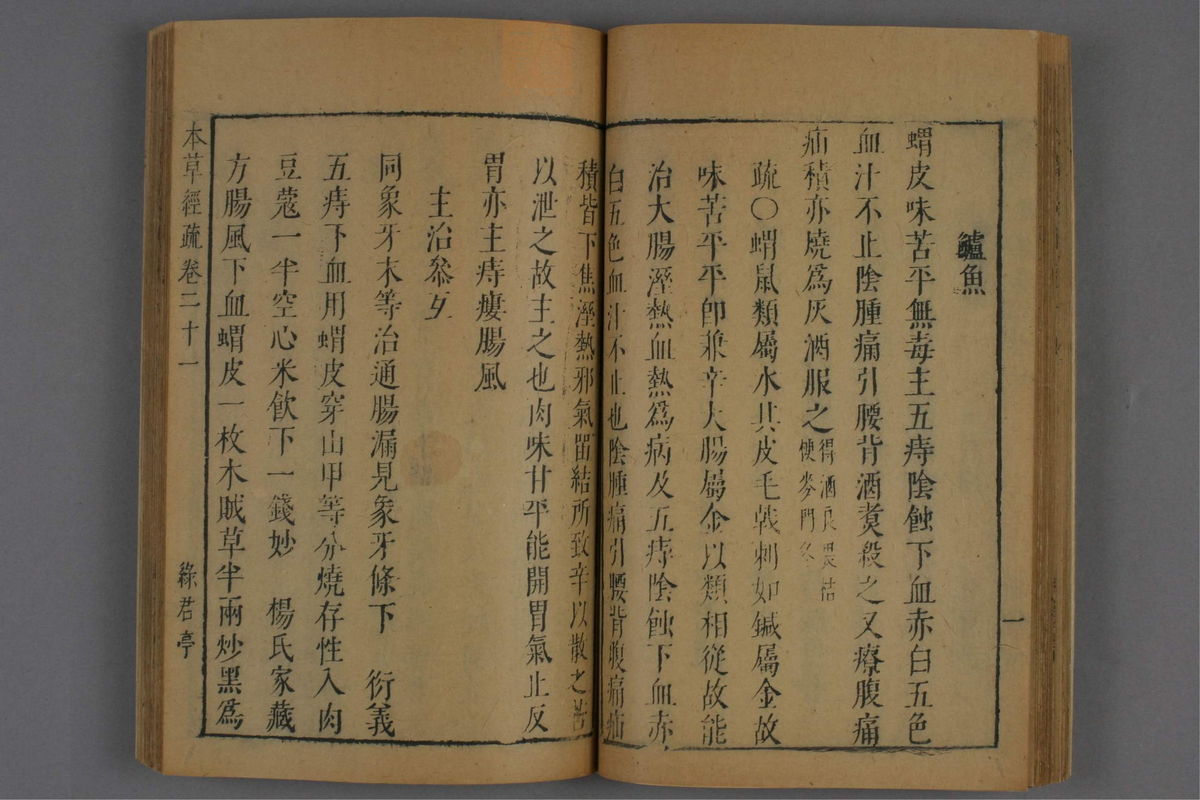 鱸魚
蝟皮味苦平無毒主五痔陰蝕下血赤白五色
血汁不止陰腫痛引腰背酒煑殺之又療腹痛
疝積亦燒爲灰酒服之得酒良畏桔
便麥門冬
疏〇蝟鼠類屬水其皮毛戟刺如鍼屬金故
味苦平平卽兼辛大腸屬金以類相從故能
治大腸溼熱血熱爲病及五痔陰蝕下血赤
白五色血汁不止也陰腫痛引腰背腹痛疝
積皆下焦溼熱邪氣留結所致辛以散之苦
以泄之故主之也肉味甘平能開胃氣止反
胃亦主痔瘻腸風
主治叅互
同象牙末等治通腸漏見象牙條下 衍義
五痔下血用蝟皮穿山甲等分燒存性入肉
豆蔻一半空心米飮下一錢妙 楊氏家藏
方腸風下血蝟皮一枚木賊草半兩炒黑爲
本草經疏卷二十一
綠君亭
一